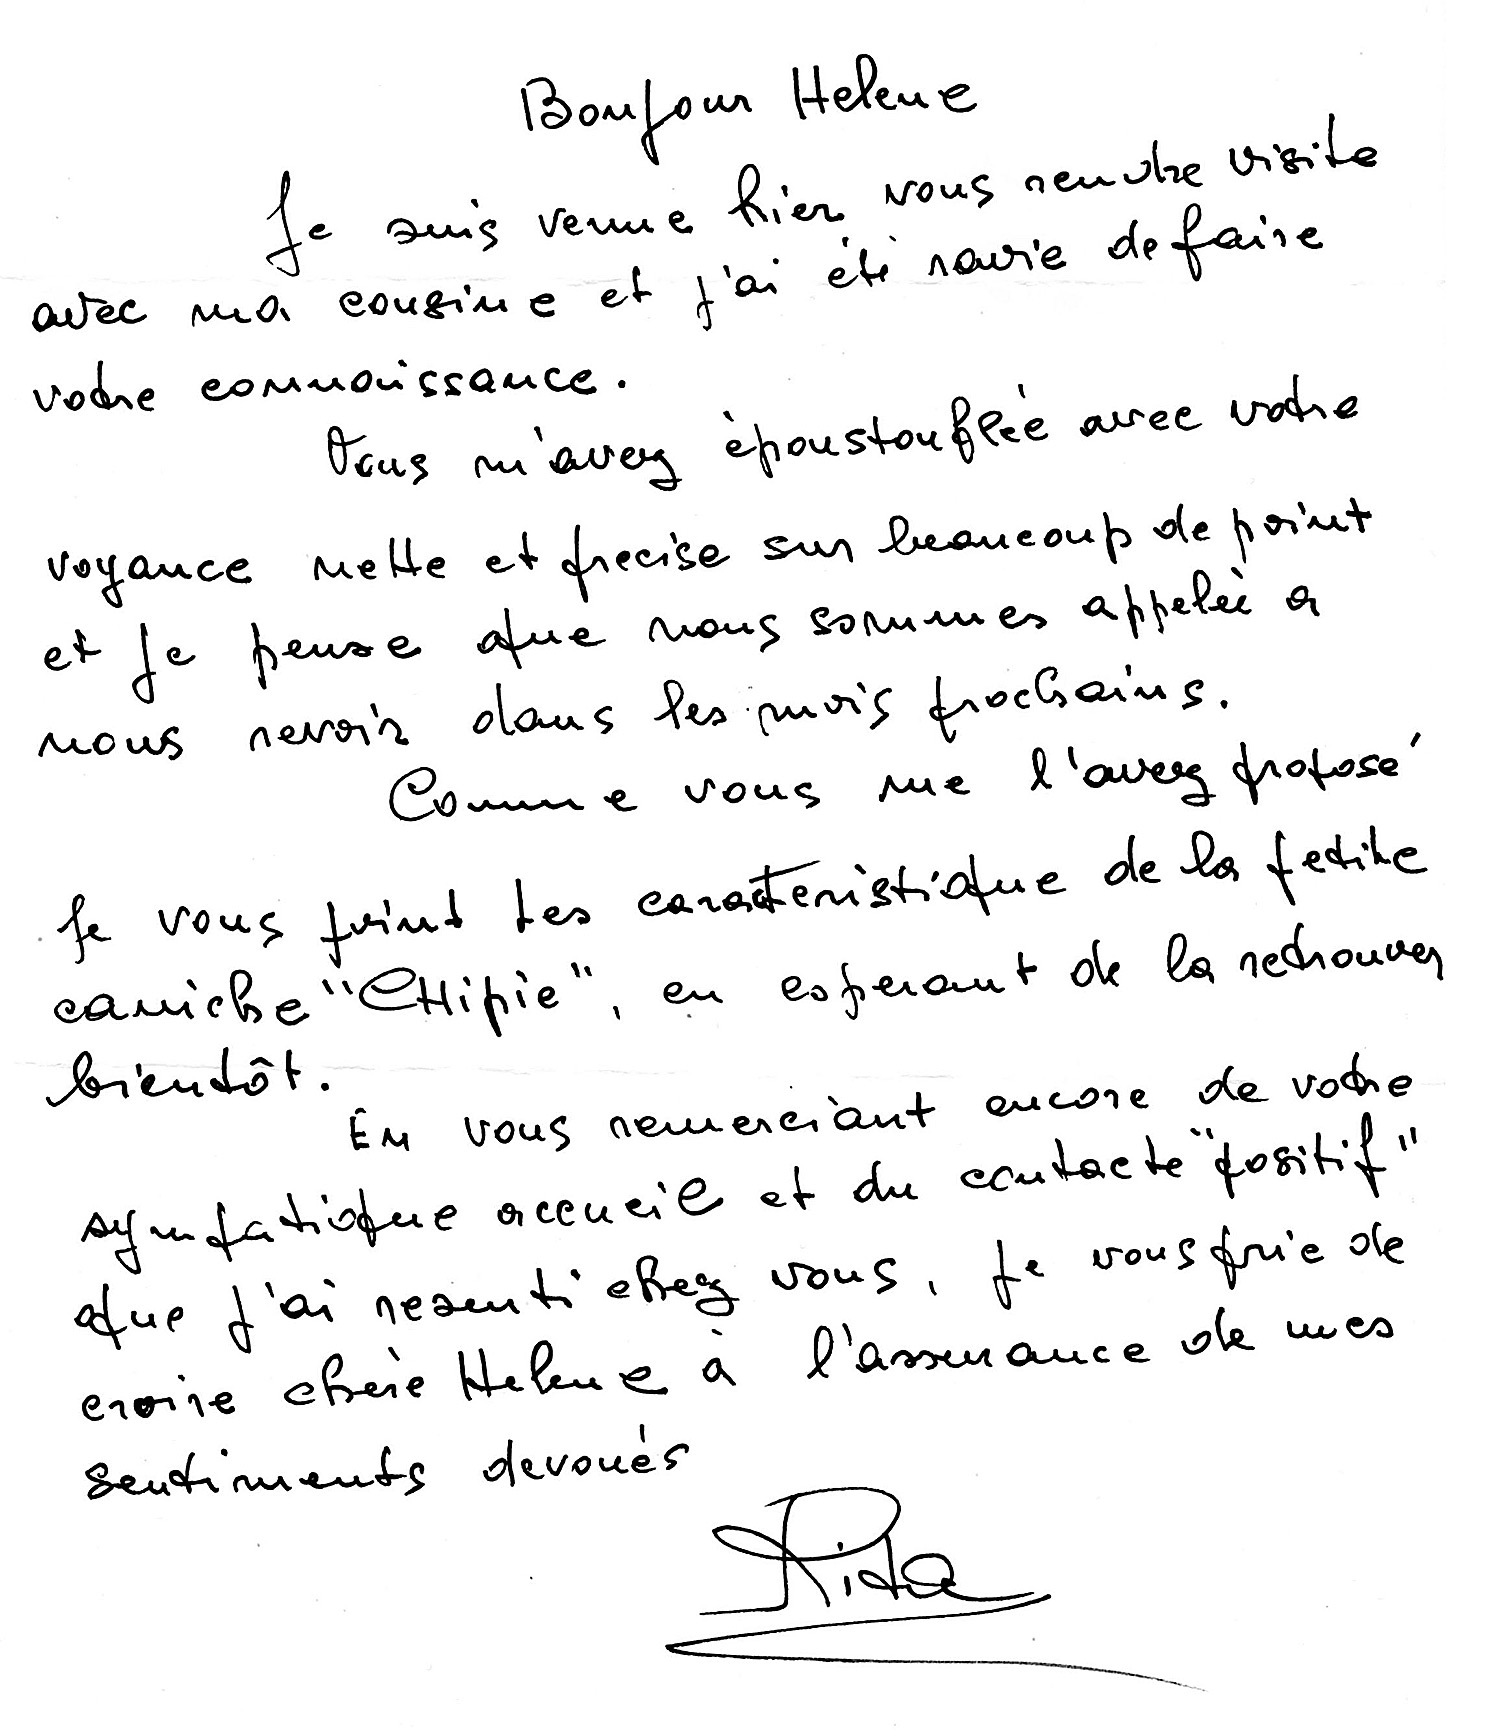 Bonjour Helene
Je suis venue hier vous rendre visite
avec ma cousine et j'ai été ravie de faire
votre connaissance.
Vous m'avez époustouflée avec votre
voyance nette et precise sur beaucoup de point
et je pense que nous sommes appelée a
nous revoir dans les mois prochains.
Comme vous me l'avez proposé
je vous joint les caractéristique de la petite
caniche "CHipie", en esperant de la retrouver
bientôt.
En vous remerciant encore de votre
sympatique accueil et du contacte "positif"
que j'ai resenti chez vous, je vous prie de
croire chère Helene à l'assurance de mes
sentiments devoués
Rita